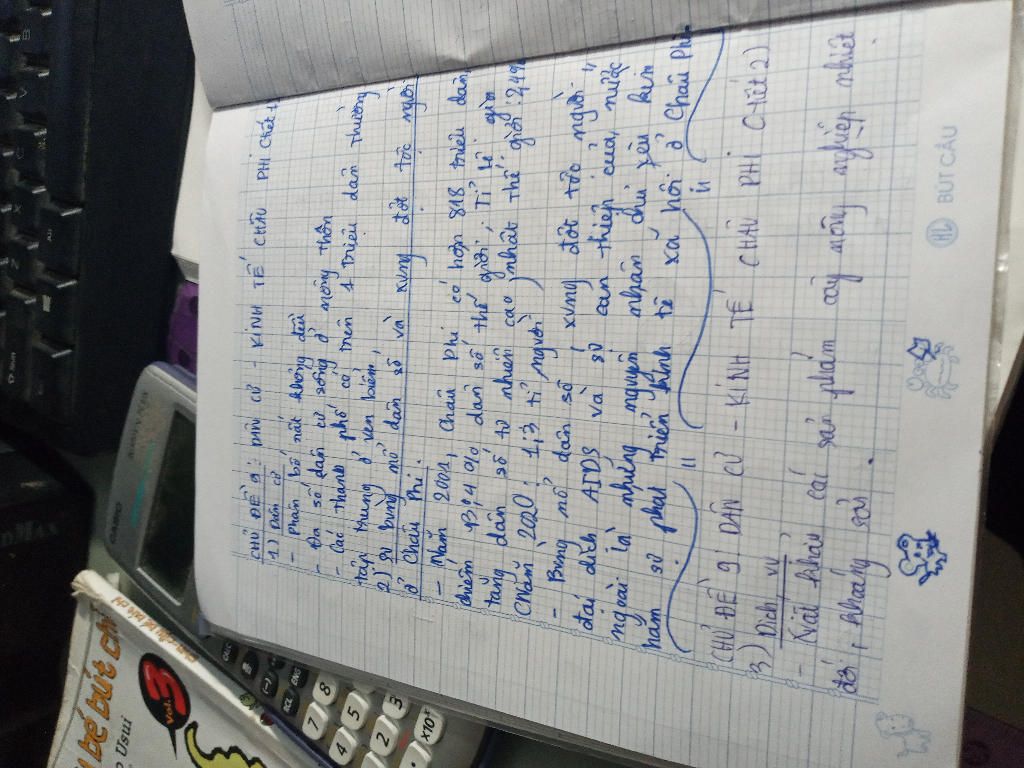 CHỦ ĐỀ 9: DÂN CƯ - KINH TẾ CHÂU PHI (tiết 1)
1) Dân cư
- Phân bố rất không đều
- Đa số dân cư sống ở nông thôn
- Các thành phố có trên 1 triệu dân thường
tập trung ở ven biển,
2) Sự bùng nổ dân số và xung đột tộc người
ở Châu Phi.
- Năm 2001, Châu Phi có hơn 818 triệu dân
chiếm 13,4% dân số thế giới, Tỉ lệ gia
tăng dân số tự nhiên cao nhất thế giới: 2,4%
(Năm 2020: 1,3 tỉ người)
- Bùng nổ dân số xung đột tộc người,
đại dịch AIDS và sự can thiệp của nước
ngoài là những nguyên nhân chủ yếu kìm
hãm sự phát triển kinh tế xã hội ở Châu Phi.
CHỦ ĐỀ 9: DÂN CƯ - KINH TẾ CHÂU PHI (tiết 2)
3) Dịch vụ
- Xuất khẩu các sản phẩm cây công nghiệp nhiệt
đới, khoáng sản.
HL BÚT CÂU
CASIO
bé bút chì
Vol. 3
Usui
7 8
4 5
1 2 3
×10ˣ
RCL ENG
(-)